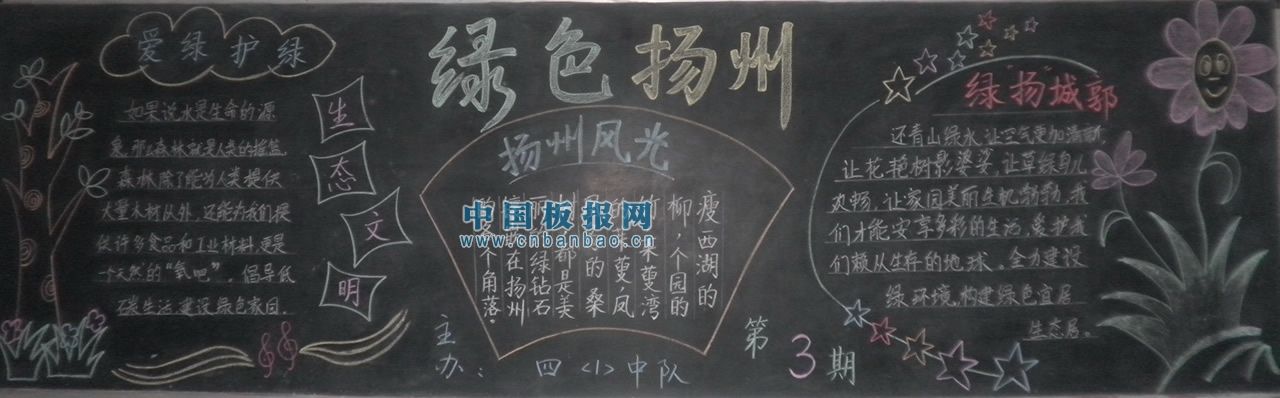 绿色扬州
爱绿护绿
如果说水是生命的源
泉,那么森林就是人类的摇篮.
森林除了能为人类提供
大量木材以外,还能为我们提
供许多食品和工业材料,更是
一个天然的“氧吧”,倡导低
碳生活,建设绿色家园.
生
态
文
明
扬州风光
瘦西湖的
柳,个园的
蔓湾
蔓,凤
的桑
都是美
丽绿钻石
在扬州
的各个角落.
中国板报网
www.cnbanbao.cn
主办:四<1>中队
第3期
绿“扬”城郭
还青山绿水,让空气更加清新,
让花艳树影婆娑,让草绿鸟儿
欢畅,让家园美丽生机勃勃,我
们才能安享多彩的生活,爱护我
们赖以生存的地球.全力建设
绿环境,构建绿色宜居
生态居.